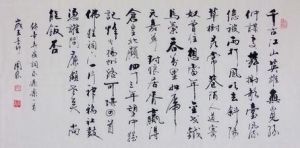 千古江山英雄無覓
孫仲謀處舞榭歌臺風流
總被雨打風吹去斜陽
草樹尋常巷陌人道寄
奴曾住想當年金戈鐵
馬氣吞萬里如虎
元嘉草草封狼居胥贏得
倉皇北顧四十三年望中猶
記烽火揚州路可堪回首
佛狸祠下一片神鴉社鼓
憑誰問廉頗老矣尚
能飯否
辛棄疾詞永遇樂